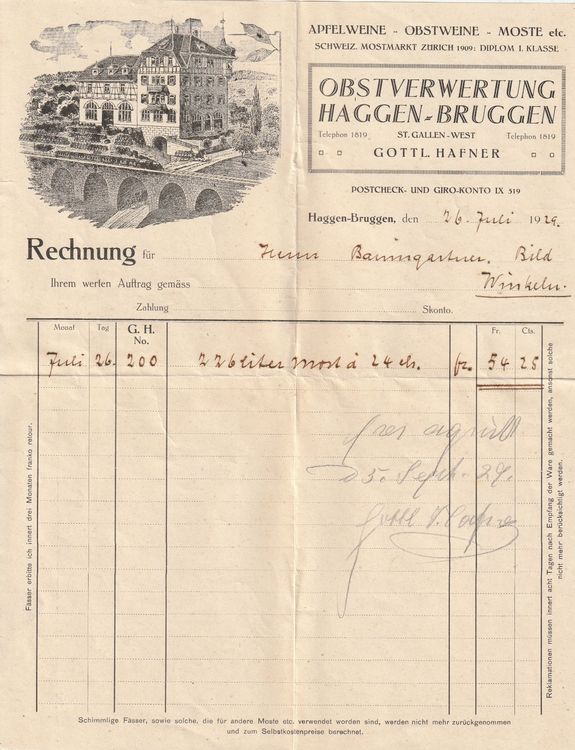 APFELWEINE - OBSTWEINE - MOSTE etc.
SCHWEIZ. MOSTMARKT ZÜRICH 1909: DIPLOM I. KLASSE
OBSTVERWERTUNG
HAGGEN-BRUGGEN
Telephon 1819 ST. GALLEN-WEST Telephon 1819
GOTTL. HAFNER
POSTCHECK- UND GIRO-KONTO IX 519
Haggen-Bruggen, den 26. Juli 1929.
Rechnung für Herrn Baumgartner, Bild
Winkeln.
Ihrem werten Auftrag gemäss
Zahlung Skonto.
Monat Tag G. H. No. Fr. Cts.
Juli 26. 200 226 liter Most à 24 cts. fr. 54 25
5. Sept. 29.
Gottl. Hafner
Fässer erbitte ich innert drei Monaten franko retour.
Reklamationen müssen innert acht Tagen nach Empfang der Ware gemacht werden, ansonst solche
nicht mehr berücksichtigt werden.
Schimmlige Fässer, sowie solche, die für andere Moste etc. verwendet worden sind, werden nicht mehr zurückgenommen
und zum Selbstkostenpreise berechnet.